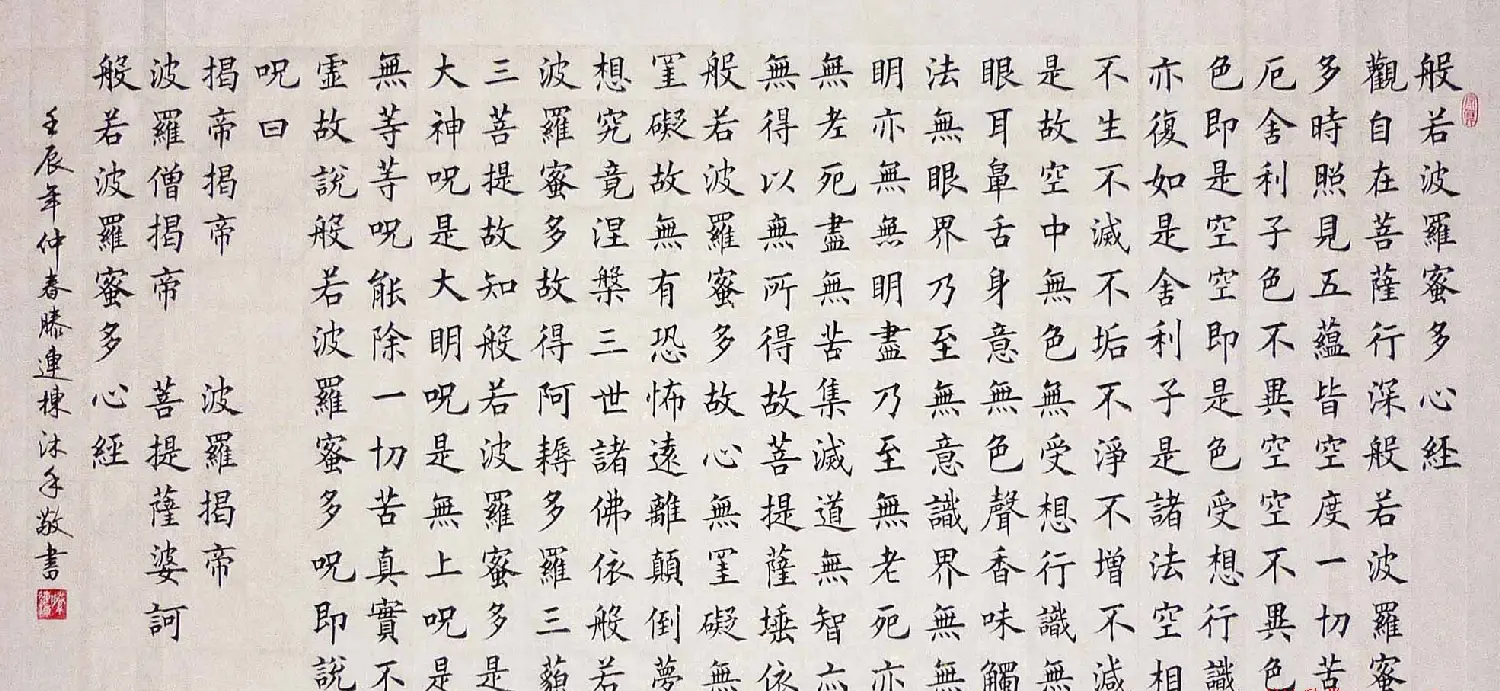 般若波羅蜜多心経
觀自在菩薩行深般若波羅蜜
多時照見五蘊皆空度一切苦
厄舍利子色不異空空不異色
色即是空空即是色受想行識
亦復如是舍利子是諸法空相
不生不滅不垢不淨不增不減
是故空中無色無受想行識無
眼耳鼻舌身意無色聲香味觸
法無眼界乃至無意識界無無
明亦無無明盡乃至無老死亦
無老死盡無苦集滅道無智亦
無得以無所得故菩提薩埵依
般若波羅蜜多故心無罣礙無
罣礙故無有恐怖遠離顛倒夢
想究竟涅槃三世諸佛依般若
波羅蜜多故得阿耨多羅三藐
三菩提故知般若波羅蜜多是
大神呪是大明呪是無上呪是
無等等呪能除一切苦真實不
虛故說般若波羅蜜多呪即說
呪曰
揭帝揭帝 波羅揭帝
波羅僧揭帝 菩提薩婆訶
般若波羅蜜多心経
壬辰年仲春滕連棟沐手敬書